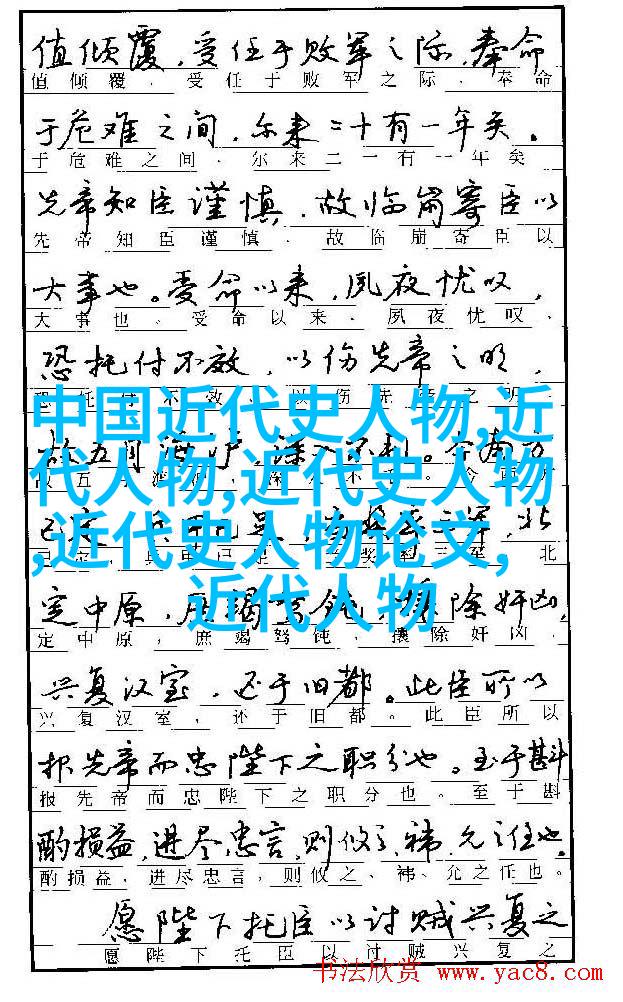 值倾覆，受任于败军之际，奉命
值倾覆，受任于败军之际，奉命
于危难之间，尔来二十有一年矣。
于危难之间，尔来二一有一年矣
先帝知臣谨慎，故临崩寄臣以
先帝知臣谨慎，故临崩寄臣以
大事也。受命以来，夙夜忧叹，
大事也。受命以来，夙夜忧叹，
恐托付不效，以伤先帝之明，
中国近代史人物,近
代人物,近代史人物
,近代史人物论文,
近代人物
定中原，庶竭驽钝，攘除奸凶，
定中原，庶竭驽钝，攘除奸凶，
兴复汉室，还于旧都。此臣所以
兴复汉室，还于旧都。此臣所以
报先帝而忠陛下之职分也。至于斟
报先帝而忠陛下之职分也。至于斟
酌损益，进尽忠言，则攸之、祎、允之任也。
酌损益，进尽忠言，则攸之、祎、允之任也。
愿陛下托臣以讨贼兴复之
愿陛下托臣以讨贼兴复之
书法欣赏 www.yac8.com